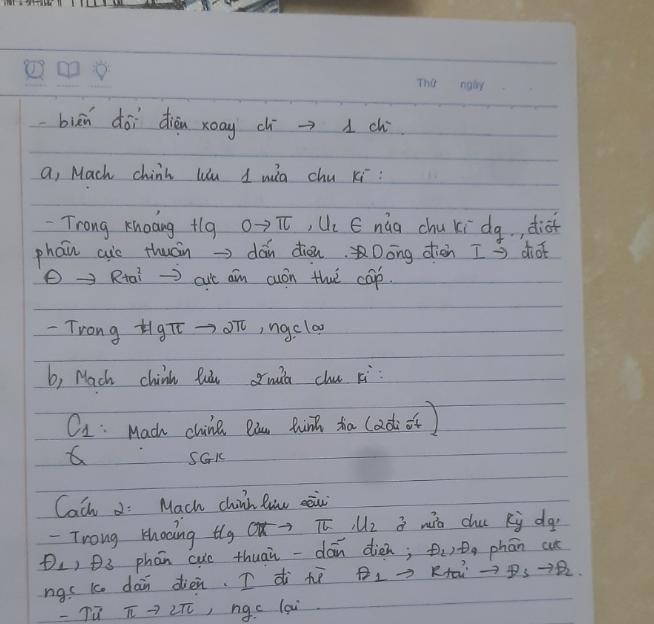 Thứ ngày
- biến đổi điện xoay ch → 1 ch.
a, Mạch chỉnh lưu 1 nửa chu kì:
- Trong khoảng tlg 0 → π, U₂ ∈ nửa chu kì dg, điốt
phân cực thuận → dẫn điện. Dòng điện I → điốt
Đ → Rtải → cực âm cuộn thứ cấp.
- Trong tlg π → 2π, ngc lại
b, Mạch chỉnh lưu 2 nửa chu kì:
C1: Mạch chỉnh lưu hình tia (2 điốt)
SGK
Cách 2: Mạch chỉnh lưu cầu
- Trong khoảng tlg 0 → π U2 ở nửa chu kỳ dg.
Đ1, Đ3 phân cực thuận - dẫn điện; Đ2, Đ4 phân cực
ngc ko dẫn điện. I đi từ Đ1 → Rtải → Đ3 → Đ2.
- Từ π → 2π, ngc lại.